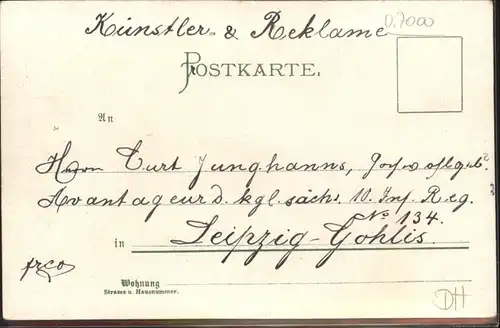 0,7000
Künstler & Reklame
POSTKARTE.
An
Herrn Curt Junghanns, Hochwohlgeb.
Avantageur d. kgl. sächs. 10. Inf. Reg.
No 134.
in Leipzig-Gohlis.
frco
Wohnung
Strasse u. Hausnummer.
DH